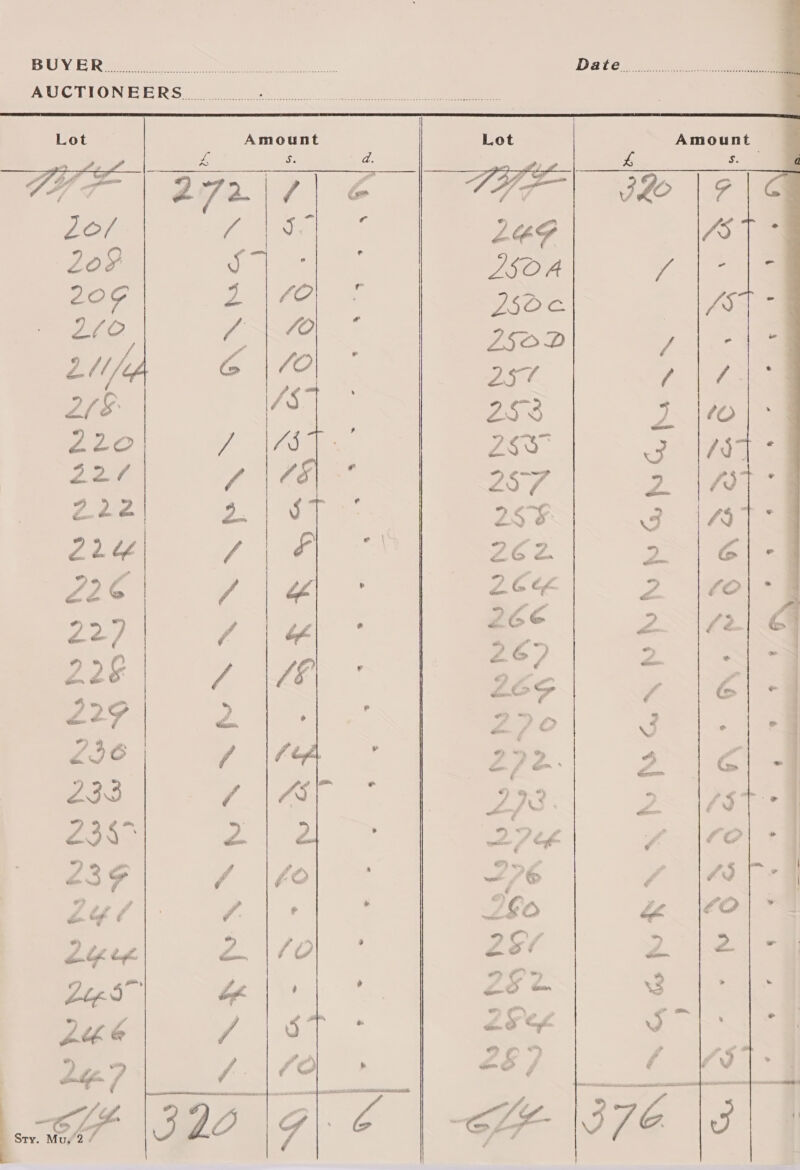 BUYER Date
AUCTIONEERS
Lot Amount Lot Amount
£ s. d. £ s. d
B/F 272 1 6 B/F 320 9 6
201 1 5 - 249 15 -
208 5 - - 250A 1 - -
209 2 10 - 250C 15 -
210 1 10 - 250D 1 - -
211/14 6 10 - 251 1 1 -
218 15 - 253 2 10 -
220 1 15 - 255 3 15 -
221 1 18 - 257 2 15 -
222 2 5 - 258 3 15 -
224 1 8 - 262 2 6 -
226 1 4 - 264 2 10 -
227 1 4 - 266 2 12 6
228 1 18 - 267 2 - -
229 2 - - 269 1 6 -
230 1 14 - 270 3 - -
233 1 15 - 272 2 6 -
235 2 2 - 273 2 15 -
239 1 10 - 274 1 10 -
241 1 - - 276 1 15 -
244 2 10 - 280 4 10 -
245 4 - - 281 2 2 -
246 1 5 - 282 3 - -
247 1 10 - 284 5 - -
287 1 15 -
C/F 320 9 6 C/F 376 3
Sty. Mu/2